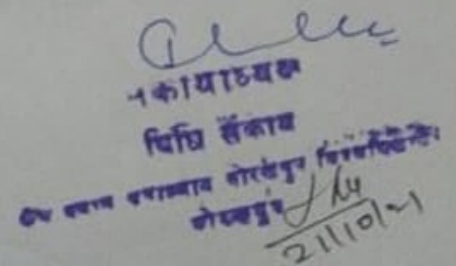 संकायाध्यक्ष
विधि संकाय
दीन दयाल उपाध्याय गोरखपुर विश्वविद्यालय
गोरखपुर
21/10/21